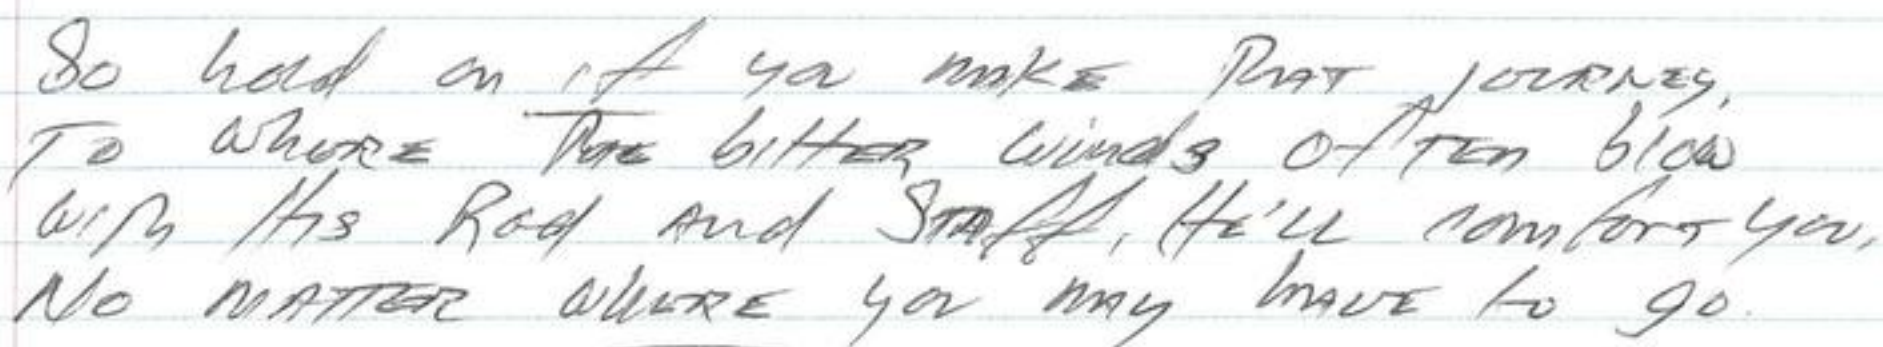 So hold on if you make that journey,
To where the bitter winds often blow
with His Rod and Staff, He'll comfort you,
No matter where you may have to go.